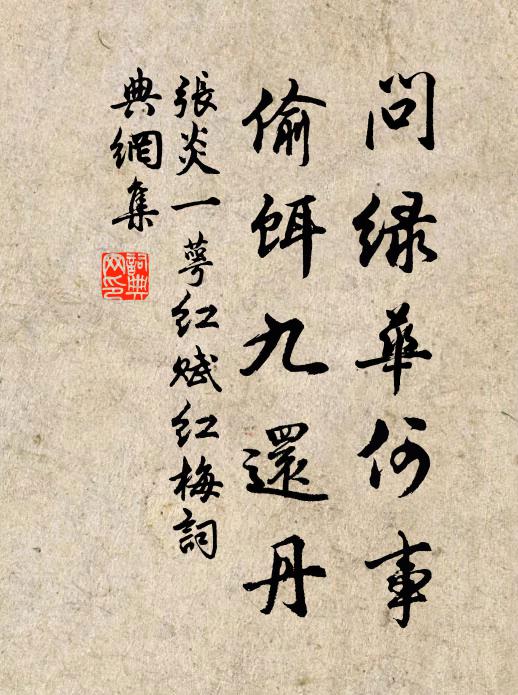 問綠華何事
偷餌九還丹
張炎一萼紅賦紅梅詞
典網集
詞典网印